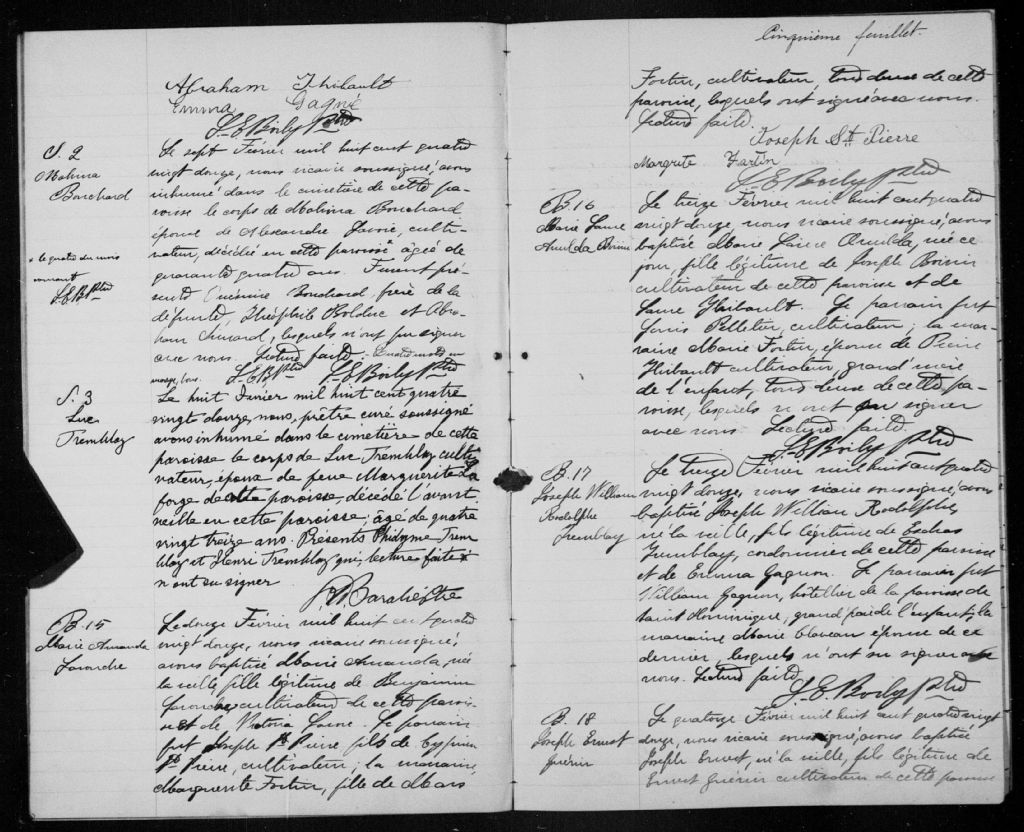 Abraham Thibault
Emma Gagné
S. E. Boily Ptre
S. 2
Malvina
Bouchard
Le sept Février mil huit cent quatre
vingt douze, nous vicaire soussigné, avons
inhumé dans le cimetière de cette pa-
roisse le corps de Malvina Bouchard
épouse de Alexandre culti-
vateur, décédée en cette paroisse * âgée de
quarante quatre ans. Furent pré-
sents Bouchard, frère de la
défunte, Théophile Bolduc et Abra-
ham lesquels n'ont pu signer
avec nous. Lecture faite. Quatre mots en
marge, bons. S. E. B. Ptre S. E. Boily Ptre
* le quatre du mois
courant
S. E. B. Ptre
S. 3
Luc
Tremblay
Le huit Fevrier mil huit cent quatre
vingt douze, nous, prêtre curé soussigné
avons inhumé dans le cimetière de cette
paroisse le corps de Luc Tremblay culti
vateur, époux de feue Marguerite La
forge de cette paroisse, décédé l'avant
veille en cette paroisse, âgé de quatre
vingt treize ans. Présents Phidyme Trem
blay et Henri Tremblay qui, lecture faite
n'ont su signer
B. 15
Marie Amanda
Lavandre
Le douze Février mil huit cent quatre
vingt douze, nous vicaire soussigné,
avons baptisé Marie Amanda, née
la veille, fille légitime de Benjamin
cultivateur de cette parois-
se et de Victoria Le parrain
fut Joseph St Pierre fils de Cyprien
St Pierre, cultivateur; la marraine
Marguerite Fortin, fille de Mars
Cinquième feuillet.
Fortin, cultivateur, tous deux de cette
paroisse, lesquels ont signé avec nous.
Lecture faite.
Joseph St Pierre
Margrite Fartin
S. E. Boily Ptre
B 16
Marie Laure
Amilda
Le treize Février mil huit cent quatre
vingt douze, nous vicaire soussigné, avons
baptisé Marie Laure Amilda, née ce
jour, fille légitime de Joseph
cultivateur de cette paroisse et de
Laure Thibault. Le parrain fut
Louis Pelletier, cultivateur; la mar-
raine Marie Fortin, épouse de Pierre
Thibault cultivateur, grand'mère
de l'enfant, tous deux de cette pa-
roisse, lesquels n'ont pu signer
avec nous. Lecture faite.
S. E. Boily Ptre
B. 17
Joseph William
Rodolphe
Tremblay
Le treize Février mil huit cent quatre
vingt douze, nous vicaire soussigné, avons
baptisé Joseph William Rodolphe,
né la veille, fils légitime de
Tremblay, cordonnier de cette paroisse
et de Emma Gagnon. Le parrain fut
William Gagnon, hôtellier de la paroisse de
Saint Dominique, grand père de l'enfant; la
marraine Marie Blaveau épouse de ce
dernier, lesquels n'ont su signer avec
nous. Lecture faite.
S. E. Boily Ptre
B. 18
Joseph Ernest
Guérin
Le quatorze Février mil huit cent quatre vingt
douze, nous vicaire soussigné, avons baptisé
Joseph Ernest, né la veille, fils légitime de
Ernest Guérin cultivateur de cette paroisse